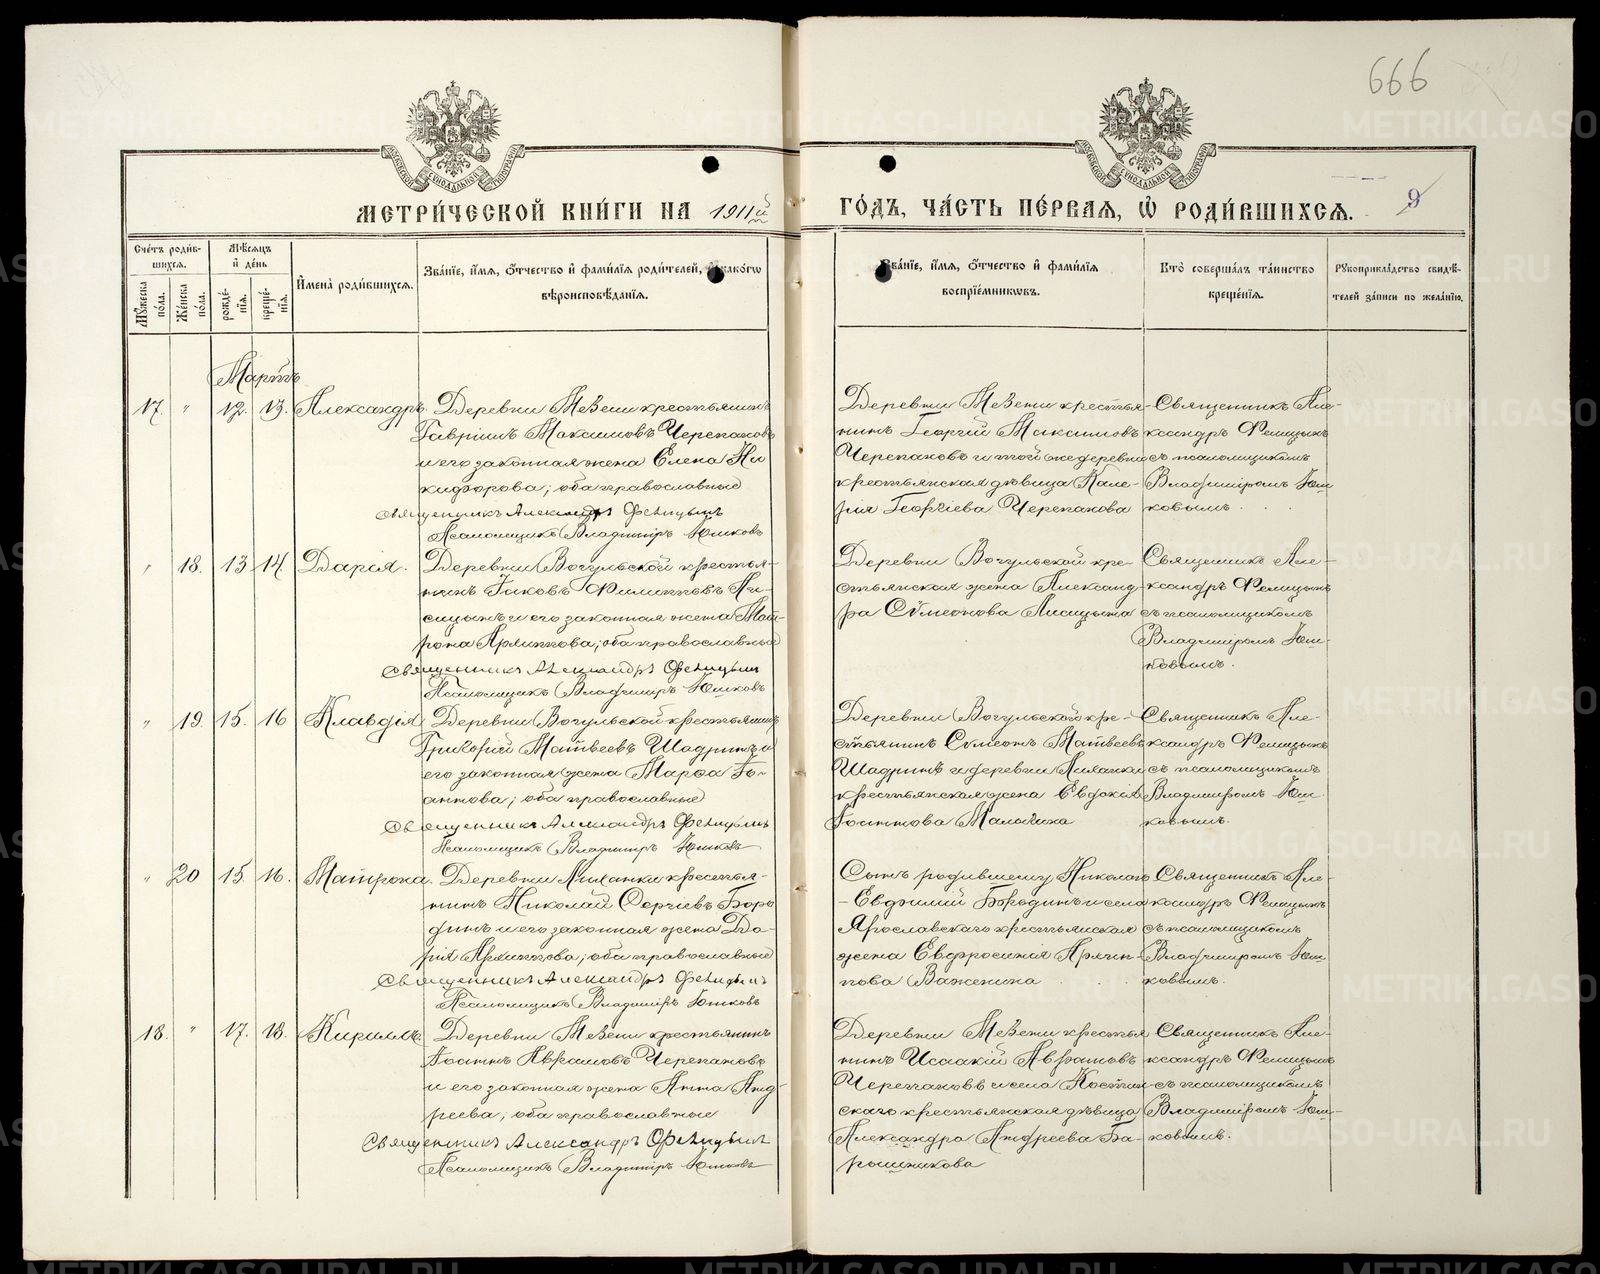 666
МЕТРИ́ЧЕСКОЙ КНИ́ГИ НА 1911й ГО́ДЪ, ЧА́СТЬ ПЕ́РВАЯ, Ѡ РОДИ́ВШИХСЯ. 9
Сче́тъ роди́в-
шихся.
Му́жеска по́ла.
Же́нска по́ла.
Мѣ́сяцъ
и де́нь
рожде́-
нїя.
креще́-
нїя.
Имена̀ роди́вшихся.
Зва́нїе, и́мя, ѻ́тчество и фами́лїя роди́телей, и како́гѡ
вѣроисповѣ́данїя.
Зва́нїе, и́мя, ѻ́тчество и фами́лїя
воспрїе́мникѡвъ.
Кто̀ соверша́лъ та́инство
креще́нїя.
Рукоприкла́дство свидѣ́-
телей за́писи по жела́нїю.
Мартъ
17. " 12. 13. Александръ.
Деревни Мезени крестьянинъ
Гаврiилъ Максимовъ Черепановъ
и его законная жена Елена Ни
кифорова; оба православные
Священникъ Александръ Феницынъ
Псаломщикъ Владимiръ Юшковъ
Деревни Мезени крестья-
нинъ Георгiй Максимовъ
Черепановъ и той же деревни
крестьянская дѣвица Вале-
рiя Георгiева Черепанова
Священникъ Але-
ксандръ Феницынъ
съ псаломщикомъ
Владимiромъ Юш
ковымъ.
" 18. 13 14. Дарiя.
Деревни Вогульской крестья-
нинъ Iаковъ Филипповъ Ли-
сицынъ и его законная жена Мат-
рона Архиппова; оба православные
Священникъ Александръ Феницынъ
Псаломщикъ Владимiръ Юшковъ
Деревни Вогульской кре-
стьянская жена Александ-
ра Сѵмеонова Лисицына
Священникъ Але-
ксандръ Феницынъ
съ псаломщикомъ
Владимiромъ Юш-
ковымъ.
" 19. 15. 16 Клавдiя
Деревни Вогульской крестьянинъ
Григорiй Матвеевъ Шадринъ и
его законная жена Марѳа Iо-
аннова; оба православные
Священникъ Александръ Феницынъ
Псаломщикъ Владимiръ Юшковъ
Деревни Вогульской кре-
стьянинъ Сѵмеонъ Матвеевъ
Шадринъ и деревни Ляханки
крестьянская жена Евдокiя
Iоаннова Малыгина
Священникъ Але-
ксандръ Феницынъ
съ псаломщикомъ
Владимiромъ Юш
ковымъ.
" 20 15. 16. Матрона.
Деревни Ляханки крестья-
нинъ Николай Сергiевъ Боро
динъ и его законная жена Да-
рiя Архиппова; оба православные
Священникъ Александръ Феницынъ
Псаломщикъ Владимiръ Юшковъ
Сынъ родившему Николаю
- Евфимiй Бородинъ и села
Ярославскаго крестьянская
жена Евфросинiя Архип-
пова Важенина
Священникъ Але-
ксандръ Феницынъ
съ псаломщикомъ
Владимiромъ Юш
ковымъ.
18. " 17. 18. Кириллъ.
Деревни Мезени крестьянинъ
Iоаннъ Аврамовъ Черепановъ
и его законная жена Анна Анд-
реева; оба православные
Священникъ Александръ Феницынъ
Псаломщикъ Владимiръ Юшковъ
Деревни Мезени крестья
нинъ Исаакiй Аврамовъ
Черепановъ и села
скаго крестьянская дѣвица
Александра Андреева Ба-
рышникова
Священникъ Але-
ксандръ Феницынъ
съ псаломщикомъ
Владимiромъ Юш-
ковымъ.
METRIKI.GASO-URAL.RU